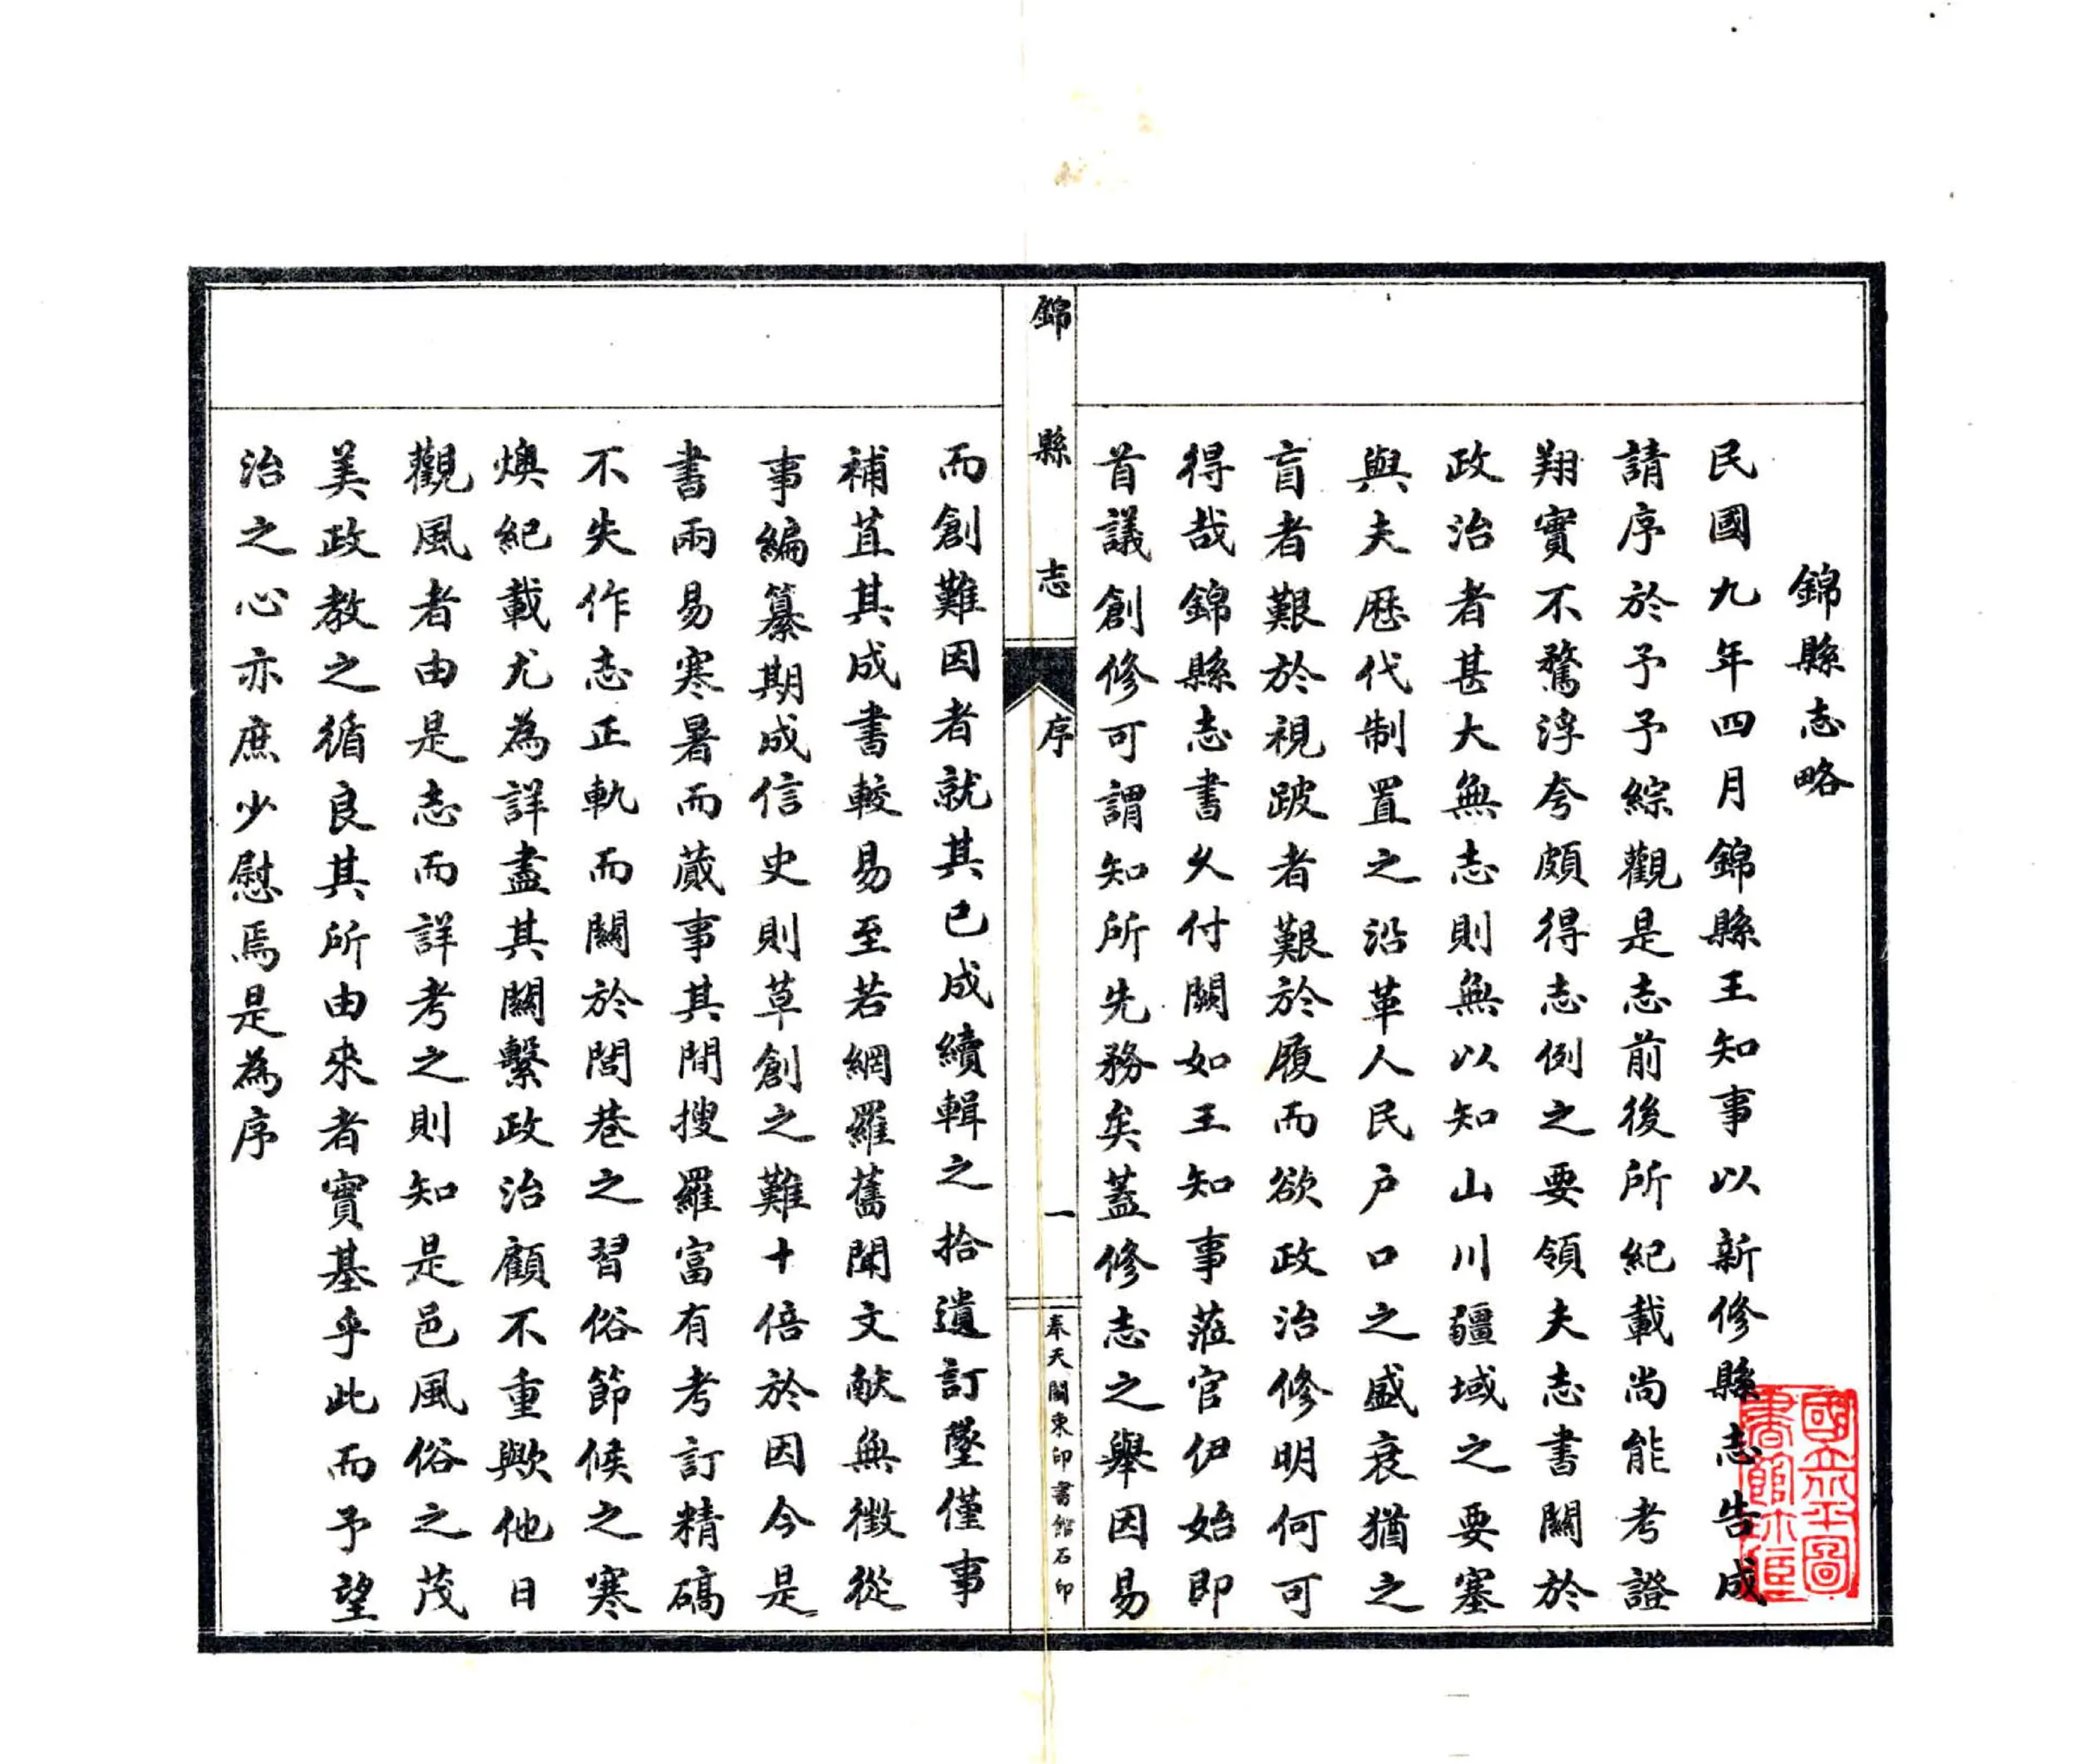 錦縣志略
民國九年四月錦縣王知事以新修縣志告成
請序於予予綜觀是志前後所紀載尚能考證
翔實不騖浮夸頗得志例之要領夫志書關於
政治者甚大無志則無以知山川疆域之要塞
與夫歷代制置之沿革人民戶口之盛衰猶之
盲者艱於視跛者艱於履而欲政治修明何可
得哉錦縣志書久付闕如王知事蒞官伊始即
首議創修可謂知所先務矣蓋修志之舉因易
而創難因者就其已成續輯之拾遺訂墜僅事
補苴其成書較易至若網羅舊聞文獻無徵從
事編纂期成信史則草創之難十倍於因今是
書兩易寒暑而蕆事其間搜羅富有考訂精碻
不失作志正軌而關於閭巷之習俗節候之寒
燠紀載尤為詳盡其關繫政治顧不重歟他日
觀風者由是志而詳考之則知是邑風俗之茂
美政教之循良其所由來者實基乎此而予望
治之心亦庶少慰焉是為序
錦縣志
序
一
奉天關東印書館石印
國立北平圖
書館收藏